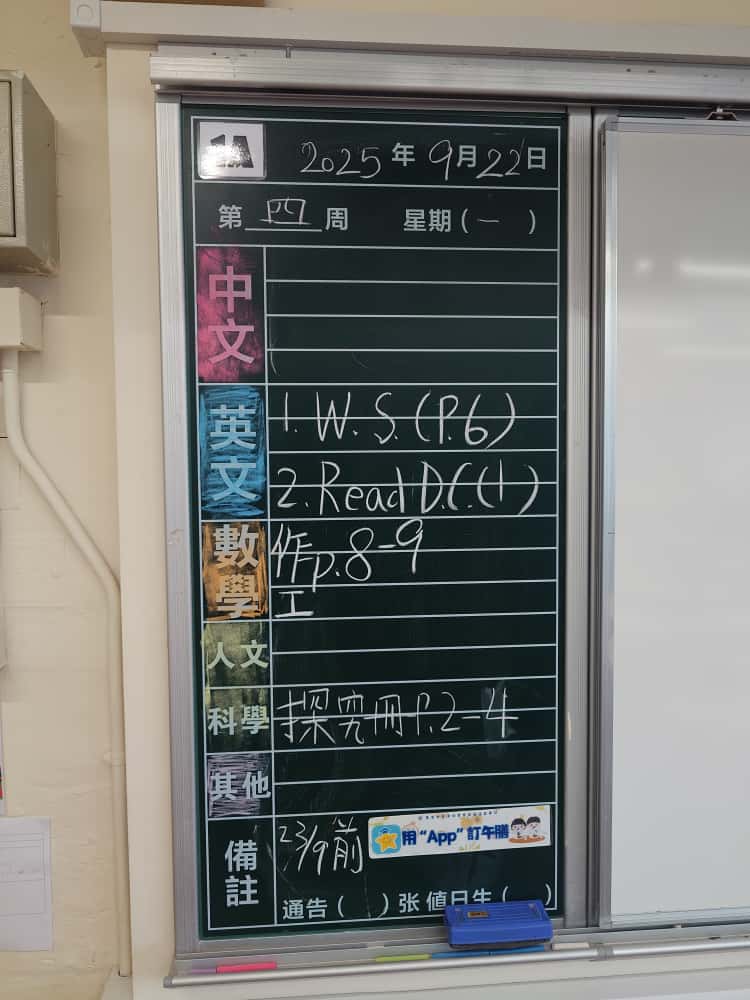 1A 2025年9月22日
第四周 星期(一 )
中文
英文 1. W.S.(P.6)
2. Read D.C.(1)
數學 作p.8-9
工
人文
科學 探究冊P.2-4
其他
備註 23/9前 用“App”訂午膳
通告( )张 值日生( )